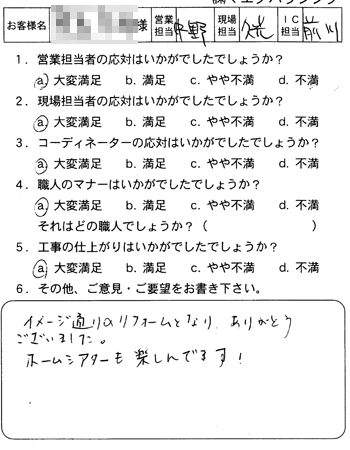 お客様名 様 営業担当 中野 現場担当 IC担当 前川
1．営業担当者の応対はいかがでしたでしょうか？
a. 大変満足 b. 満足 c. やや不満 d. 不満
2．現場担当者の応対はいかがでしたでしょうか？
a. 大変満足 b. 満足 c. やや不満 d. 不満
3．コーディネーターの応対はいかがでしたでしょうか？
a. 大変満足 b. 満足 c. やや不満 d. 不満
4．職人のマナーはいかがでしたでしょうか？
a. 大変満足 b. 満足 c. やや不満 d. 不満
それはどの職人でしょうか？（ ）
5．工事の仕上がりはいかがでしたでしょうか？
a. 大変満足 b. 満足 c. やや不満 d. 不満
6．その他、ご意見・ご要望をお書き下さい。
イメージ通りのリフォームとなり、ありがとう
ございました。
ホームシアターも楽しんでます！